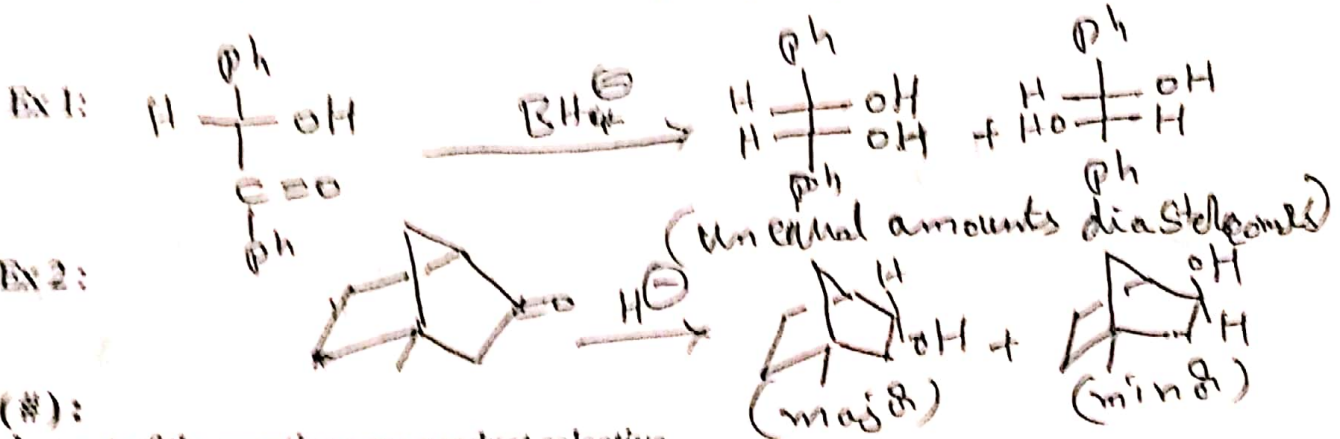 Ex 1:
Ph
H OH
C=O
Ph
BH4⊖
Ph
H OH
H OH
Ph
+
Ph
H OH
HO H
Ph
(unequal amounts
Ex 2:
=O
H⊖
H
OH
+
OH
H
(major)
(minor)
(#):